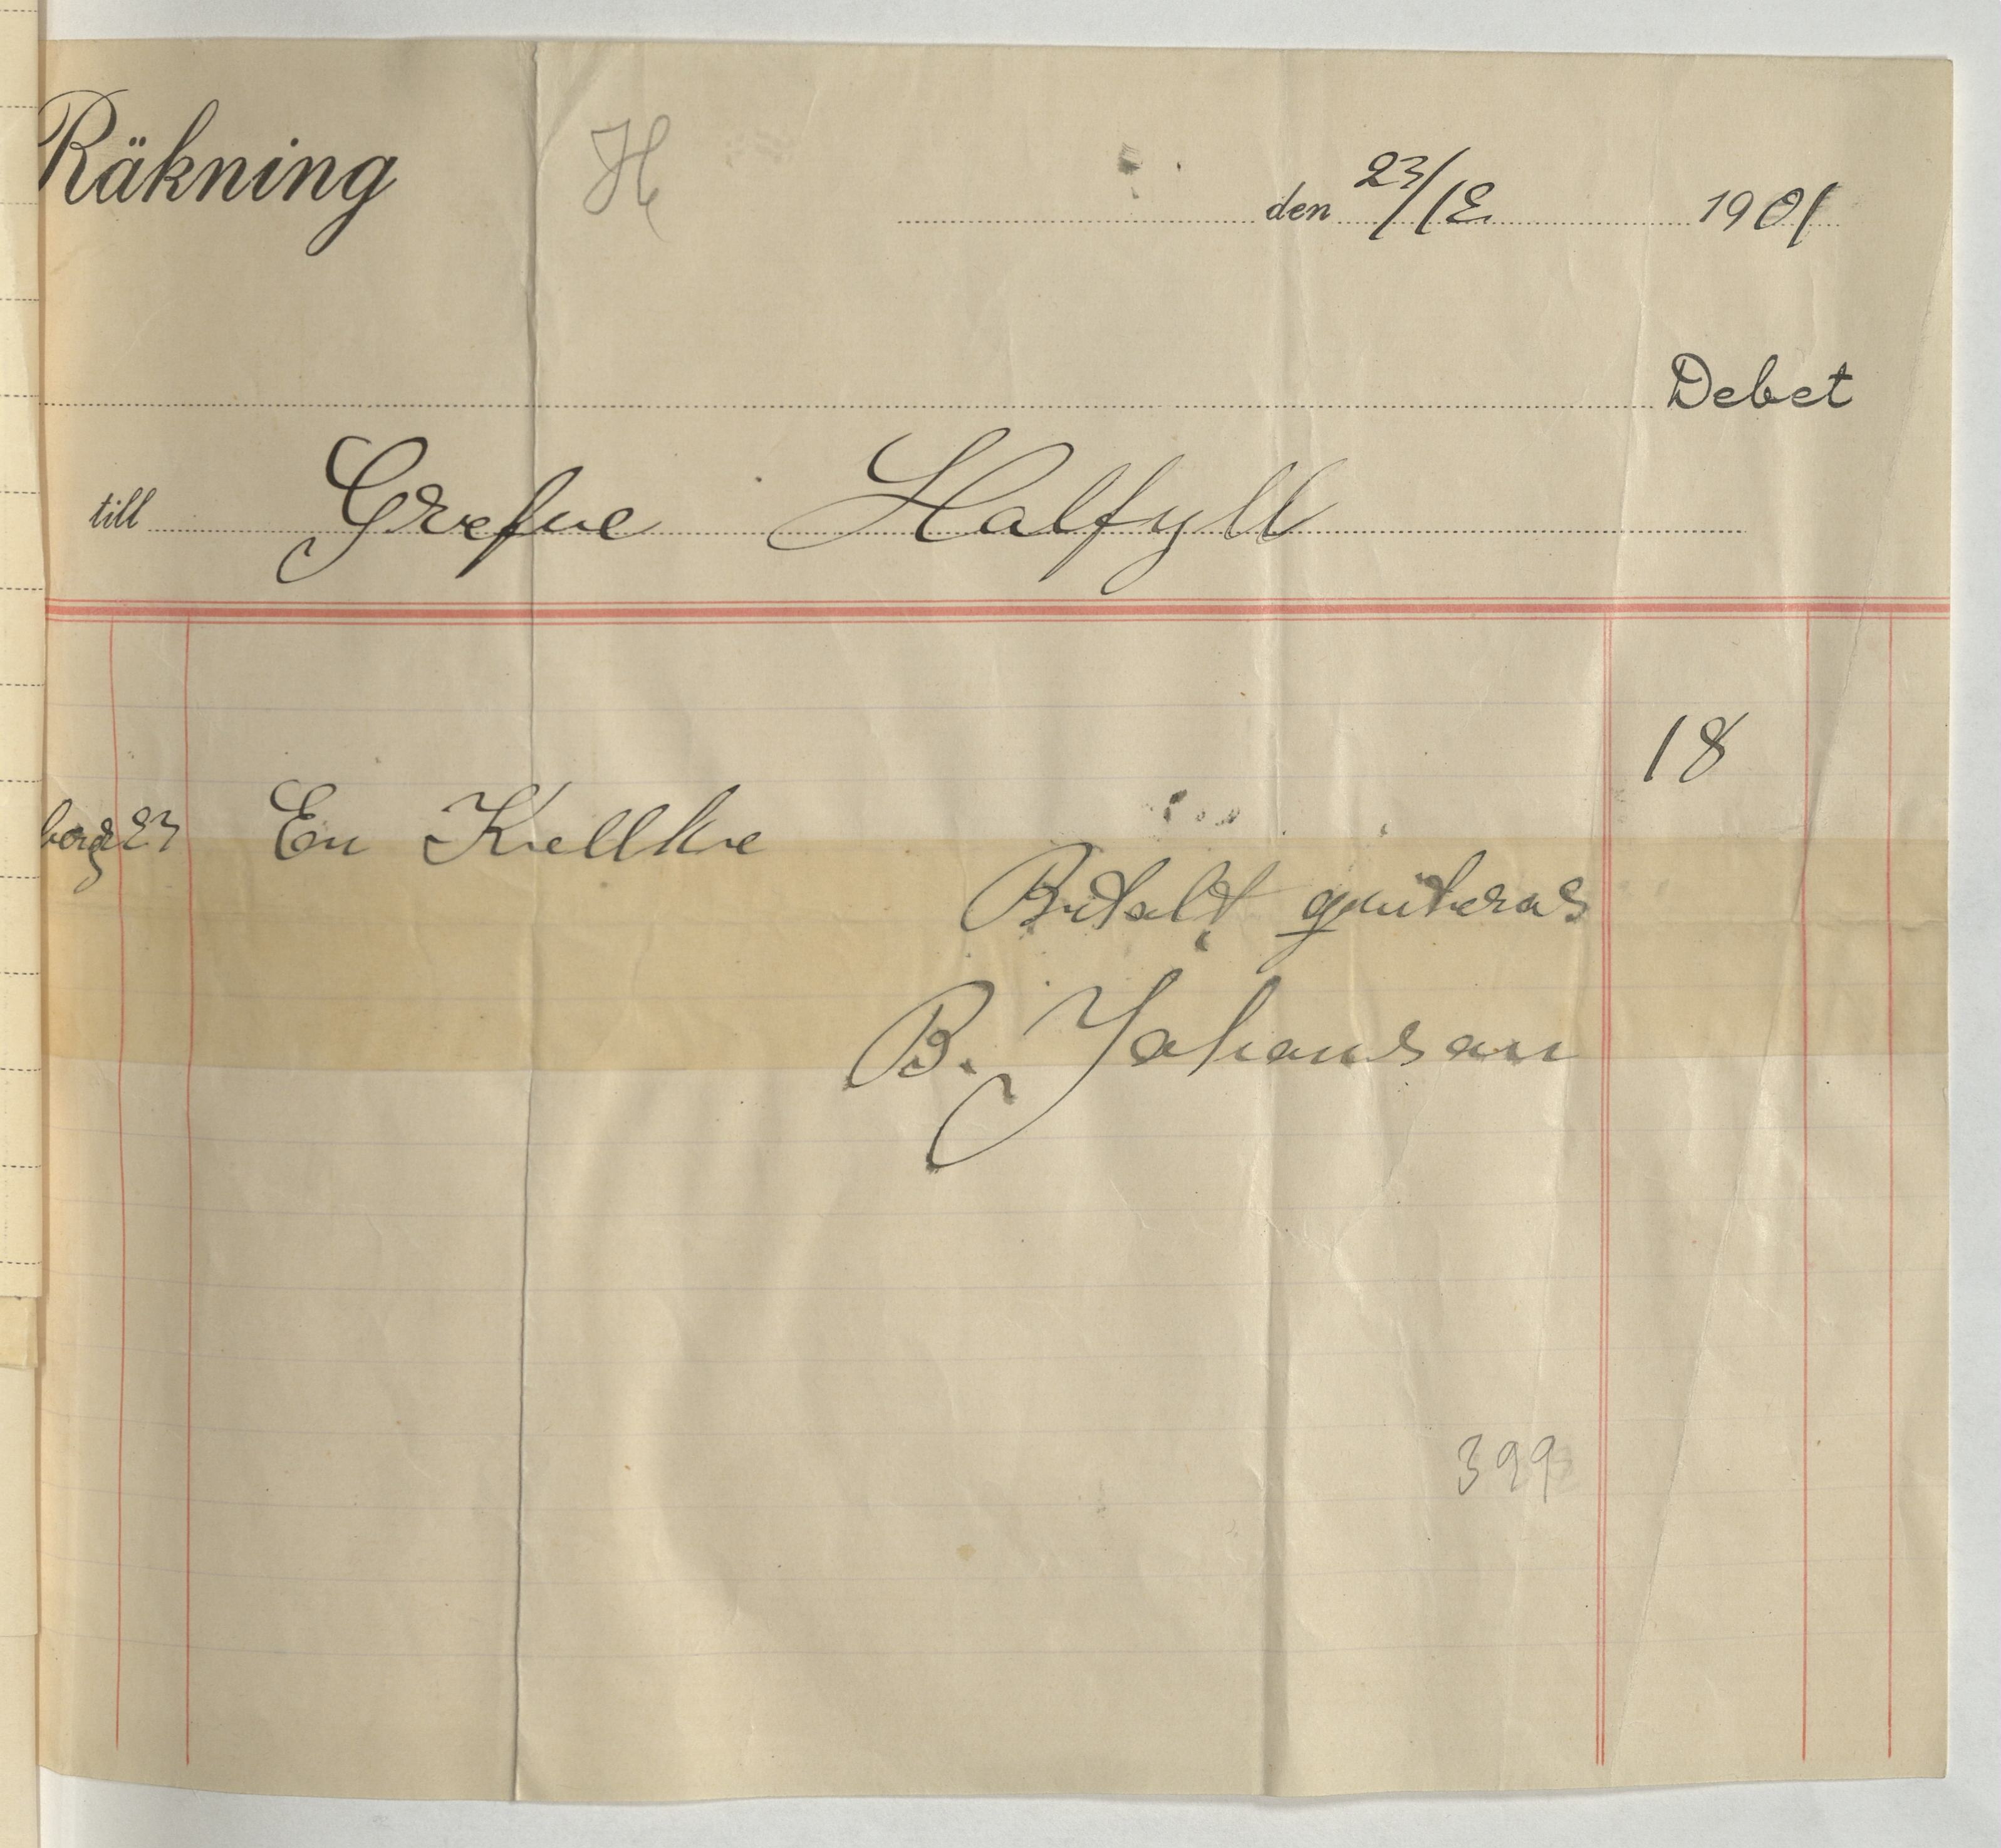 Räkning
H
den 23/12 1901
Debet
till Grefve Halfyll
18
23 En Kellke
Betalt qviteras
B. Johansan
399